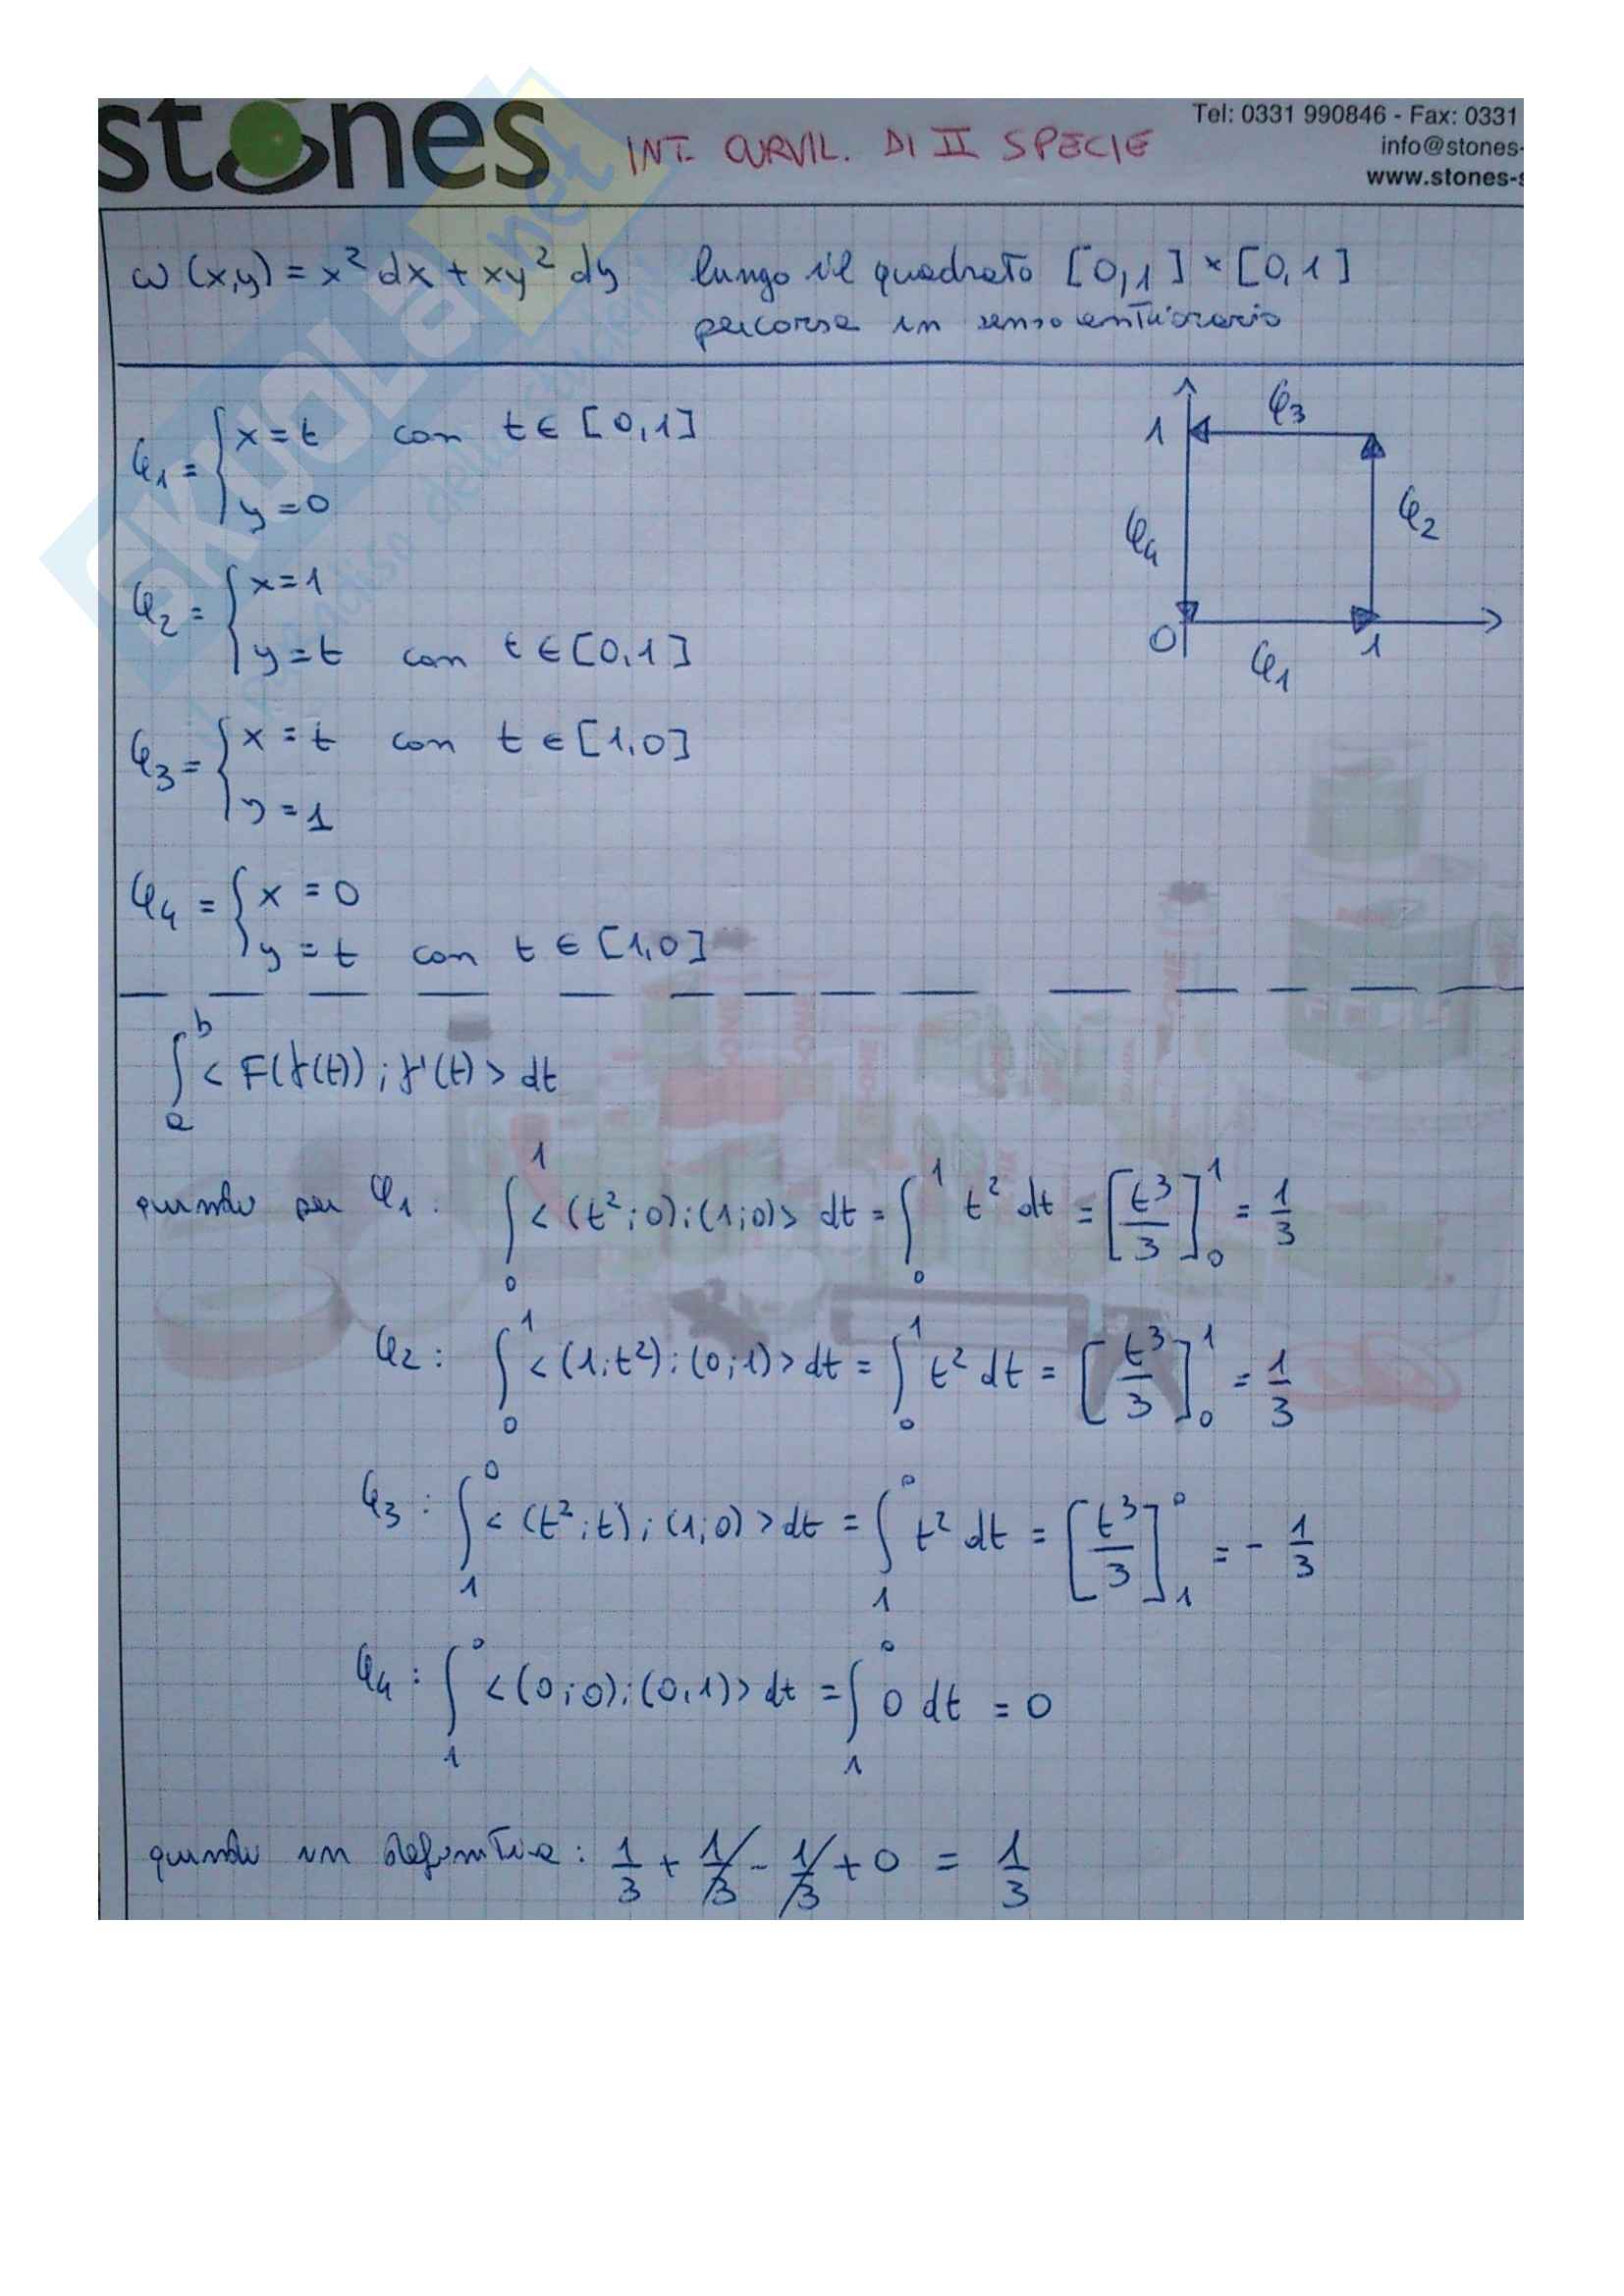 stones
INT. CURVIL. DI II SPECIE
Tel: 0331 990846 - Fax: 0331
info@stones-
www.stones-s
SKUOLA.net
il paradiso dello studente
ω(x,y) = x² dx + xy² dy lungo il quadrato [0,1] × [0,1]
percorso in senso antiorario
φ₁ = { x = t con t ∈ [0,1]
y = 0
φ₂ = { x = 1
y = t con t ∈ [0,1]
φ₃ = { x = t con t ∈ [1,0]
y = 1
φ₄ = { x = 0
y = t con t ∈ [1,0]
1 φ₃
φ₄ φ₂
0 φ₁ 1
∫ₐᵇ < F(γ(t)) ; γ'(t) > dt
quindi per φ₁ : ∫₀¹ < (t² ; 0) ; (1 ; 0) > dt = ∫₀¹ t² dt = [t³/3]₀¹ = 1/3
φ₂ : ∫₀¹ < (1 ; t²) ; (0 ; 1) > dt = ∫₀¹ t² dt = [t³/3]₀¹ = 1/3
φ₃ : ∫₁⁰ < (t² ; t) ; (1 ; 0) > dt = ∫₁⁰ t² dt = [t³/3]₁⁰ = - 1/3
φ₄ : ∫₁⁰ < (0 ; 0) ; (0,1) > dt = ∫₁⁰ 0 dt = 0
quindi in definitiva : 1/3 + 1/3 - 1/3 + 0 = 1/3